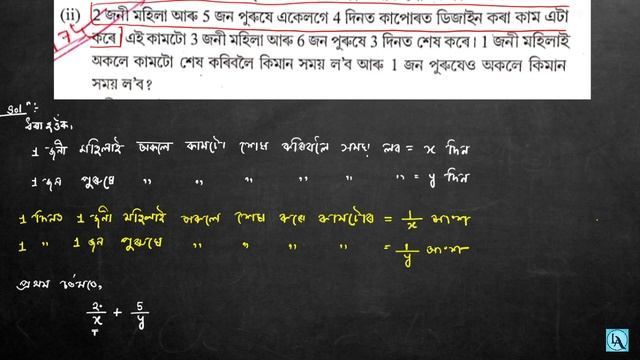 (ii) 2 জনী মহিলা আৰু 5 জন পুৰুষে একেলগে 4 দিনত কাপোৰত ডিজাইন কৰা কাম এটা
কৰে। এই কামটো 3 জনী মহিলা আৰু 6 জন পুৰুষে 3 দিনত শেষ কৰে। 1 জনী মহিলাই
অকলে কামটো শেষ কৰিবলৈ কিমান সময় ল'ব আৰু 1 জন পুৰুষেও অকলে কিমান
সময় ল'ব?
Solⁿ:
ধৰা হওঁক,
1 জনী মহিলাই অকলে কামটো শেষ কৰিবলৈ সময় লব = x দিন
1 জন পুৰুষে " " " " " " = y দিন
1 দিনত 1 জনী মহিলাই অকলে শেষ কৰে কামটোৰ = 1/x অংশ
1 " 1 জন পুৰুষে " " " " = 1/y অংশ
প্ৰথম চৰ্তমতে,
2/x + 5/y